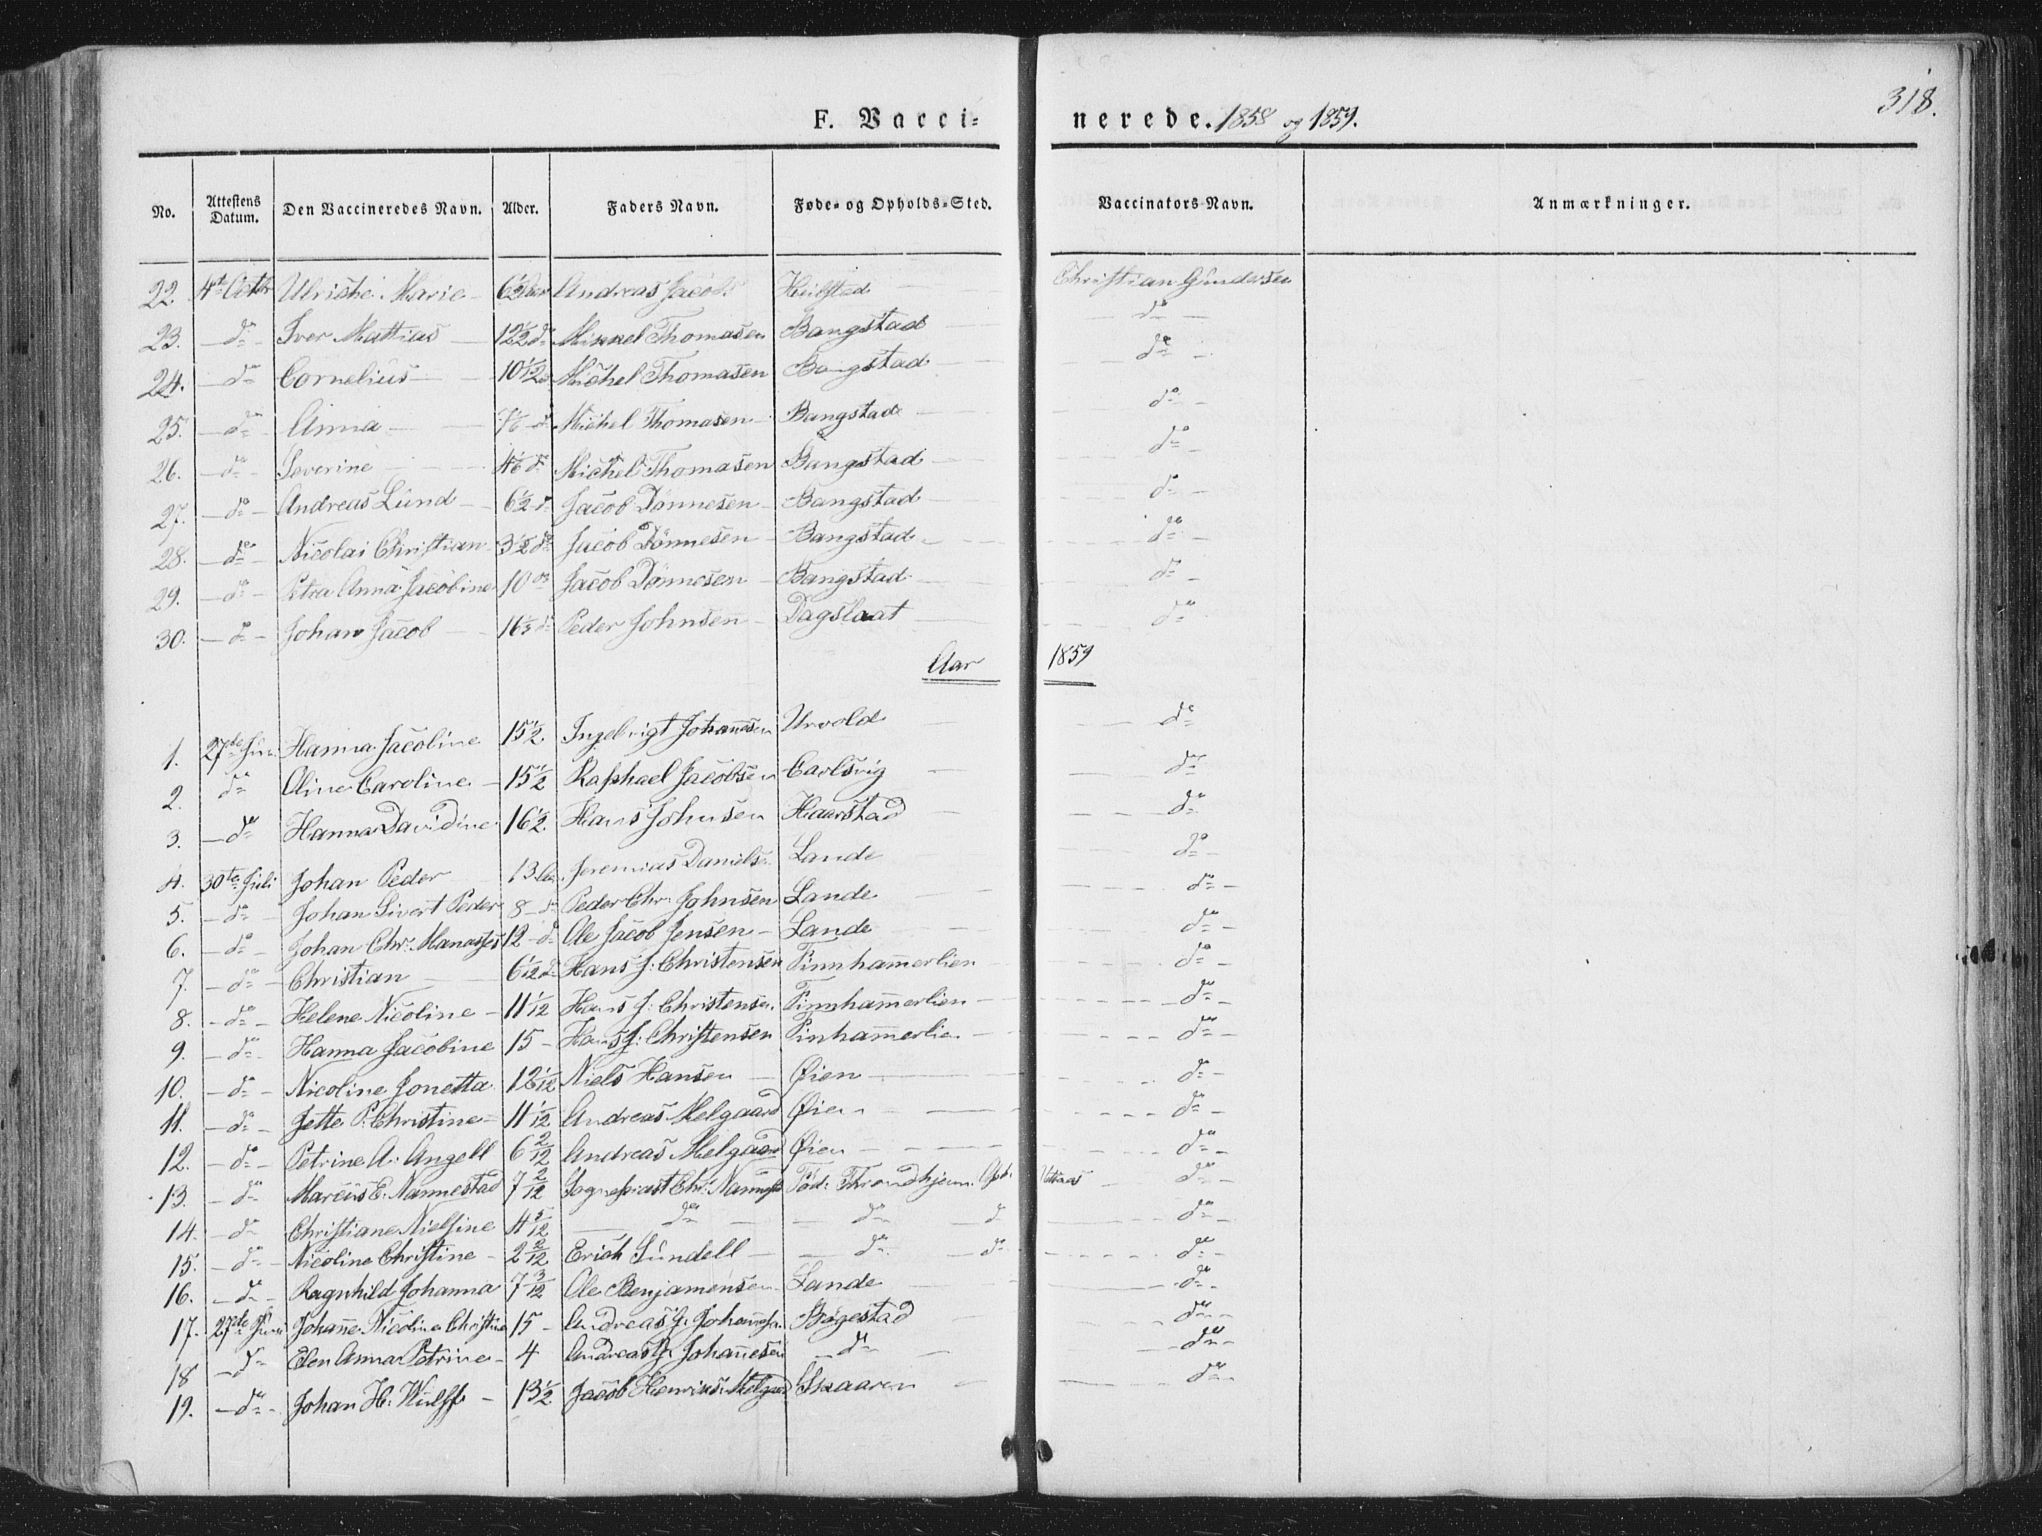 318.
F. Vaccinerede. 1858 og 1859.
No. Attestens Datum. Den Vaccineredes Navn. Alder. Faders Navn. Føde- og Opholds-Sted. Vaccinators Navn. Anmærkninger.
22. 4de Octbr Ulriche Marie Andreas Jacobs. Christian Gundersen
23. do Iver Mattias 12½ do Mikkel Thomasen Bangstad do
24. do Cornelius 10 1/12 Michel Thomasen Bangstad do
25. do Anna Michel Thomasen Bangstad do
26. do Severine Michel Thomasen Bangstad do
27. do Andreas Lund 6½ do Jacob Dønnesen Bangstad do
28. do Nicolai Christian 3½ do Jacob Dønnesen Bangstad do
29. do Petra Anna Jacobine 10 do Jacob Dønnesen Bangstad do
30. do Johan Jacob Peder Johnsen Dagslaat do
Aar 1859
1. 27de Juni Hanna Jacoline 15½ Ingebrigt Johannesen Urvold do
2. do Oline Caroline 15½ Raphael Jacobsen Carlsvig do
3. do Hanna Davidine 16½ Hans Johnsen Haarstad do
4. 30te Juli Johan Peder 13 Jeremias Daniels. Lande do
5. do Johan Sivert Peder 8 do Peder Chr. Johnsen Lande do
6. do Johan Chr. Manasses 12 do Ole Jacob Jensen Lande do
7. do Christian 6 1/12 do Hans J. Christensen Finnhammerlien do
8. do Helene Nicoline 11 1/12 Hans J. Christensen Finnhammerlien do
9. do Hanna Jacobine 15 Hans J. Christensen Finhammerlien do
10. do Nicoline Jonetta Niels Hansen Øien do
11. do Jette P. Christine 11 1/12 Andreas Melgaard Øien do
12. do Petrine A. Angell 6 2/12 Andreas Melgaard Øien do
13. do Marcus C. Nannestad 7 2/12 Sognepræst Chr. Nannestad Fød: Throndhjem. Oph: Vatsaas do
14. do Christiane Nielsine 4 5/12 do do d do
15. do Nicoline Christine 2 2/12 Erich Sundell do do do
16. do Ragnhild Johanna 7 3/12 Ole Benjamensen Lande do
17. 27de Juni Johanne Nicoline Christine 15 Andreas J. Johannesen Bøgestad do
18 do Elen Anna Petrine 4 Andreas J. Johannesen do do
19. do Johan H. Wulff 13½ Jacob Henrik Melgaard Skaaren do